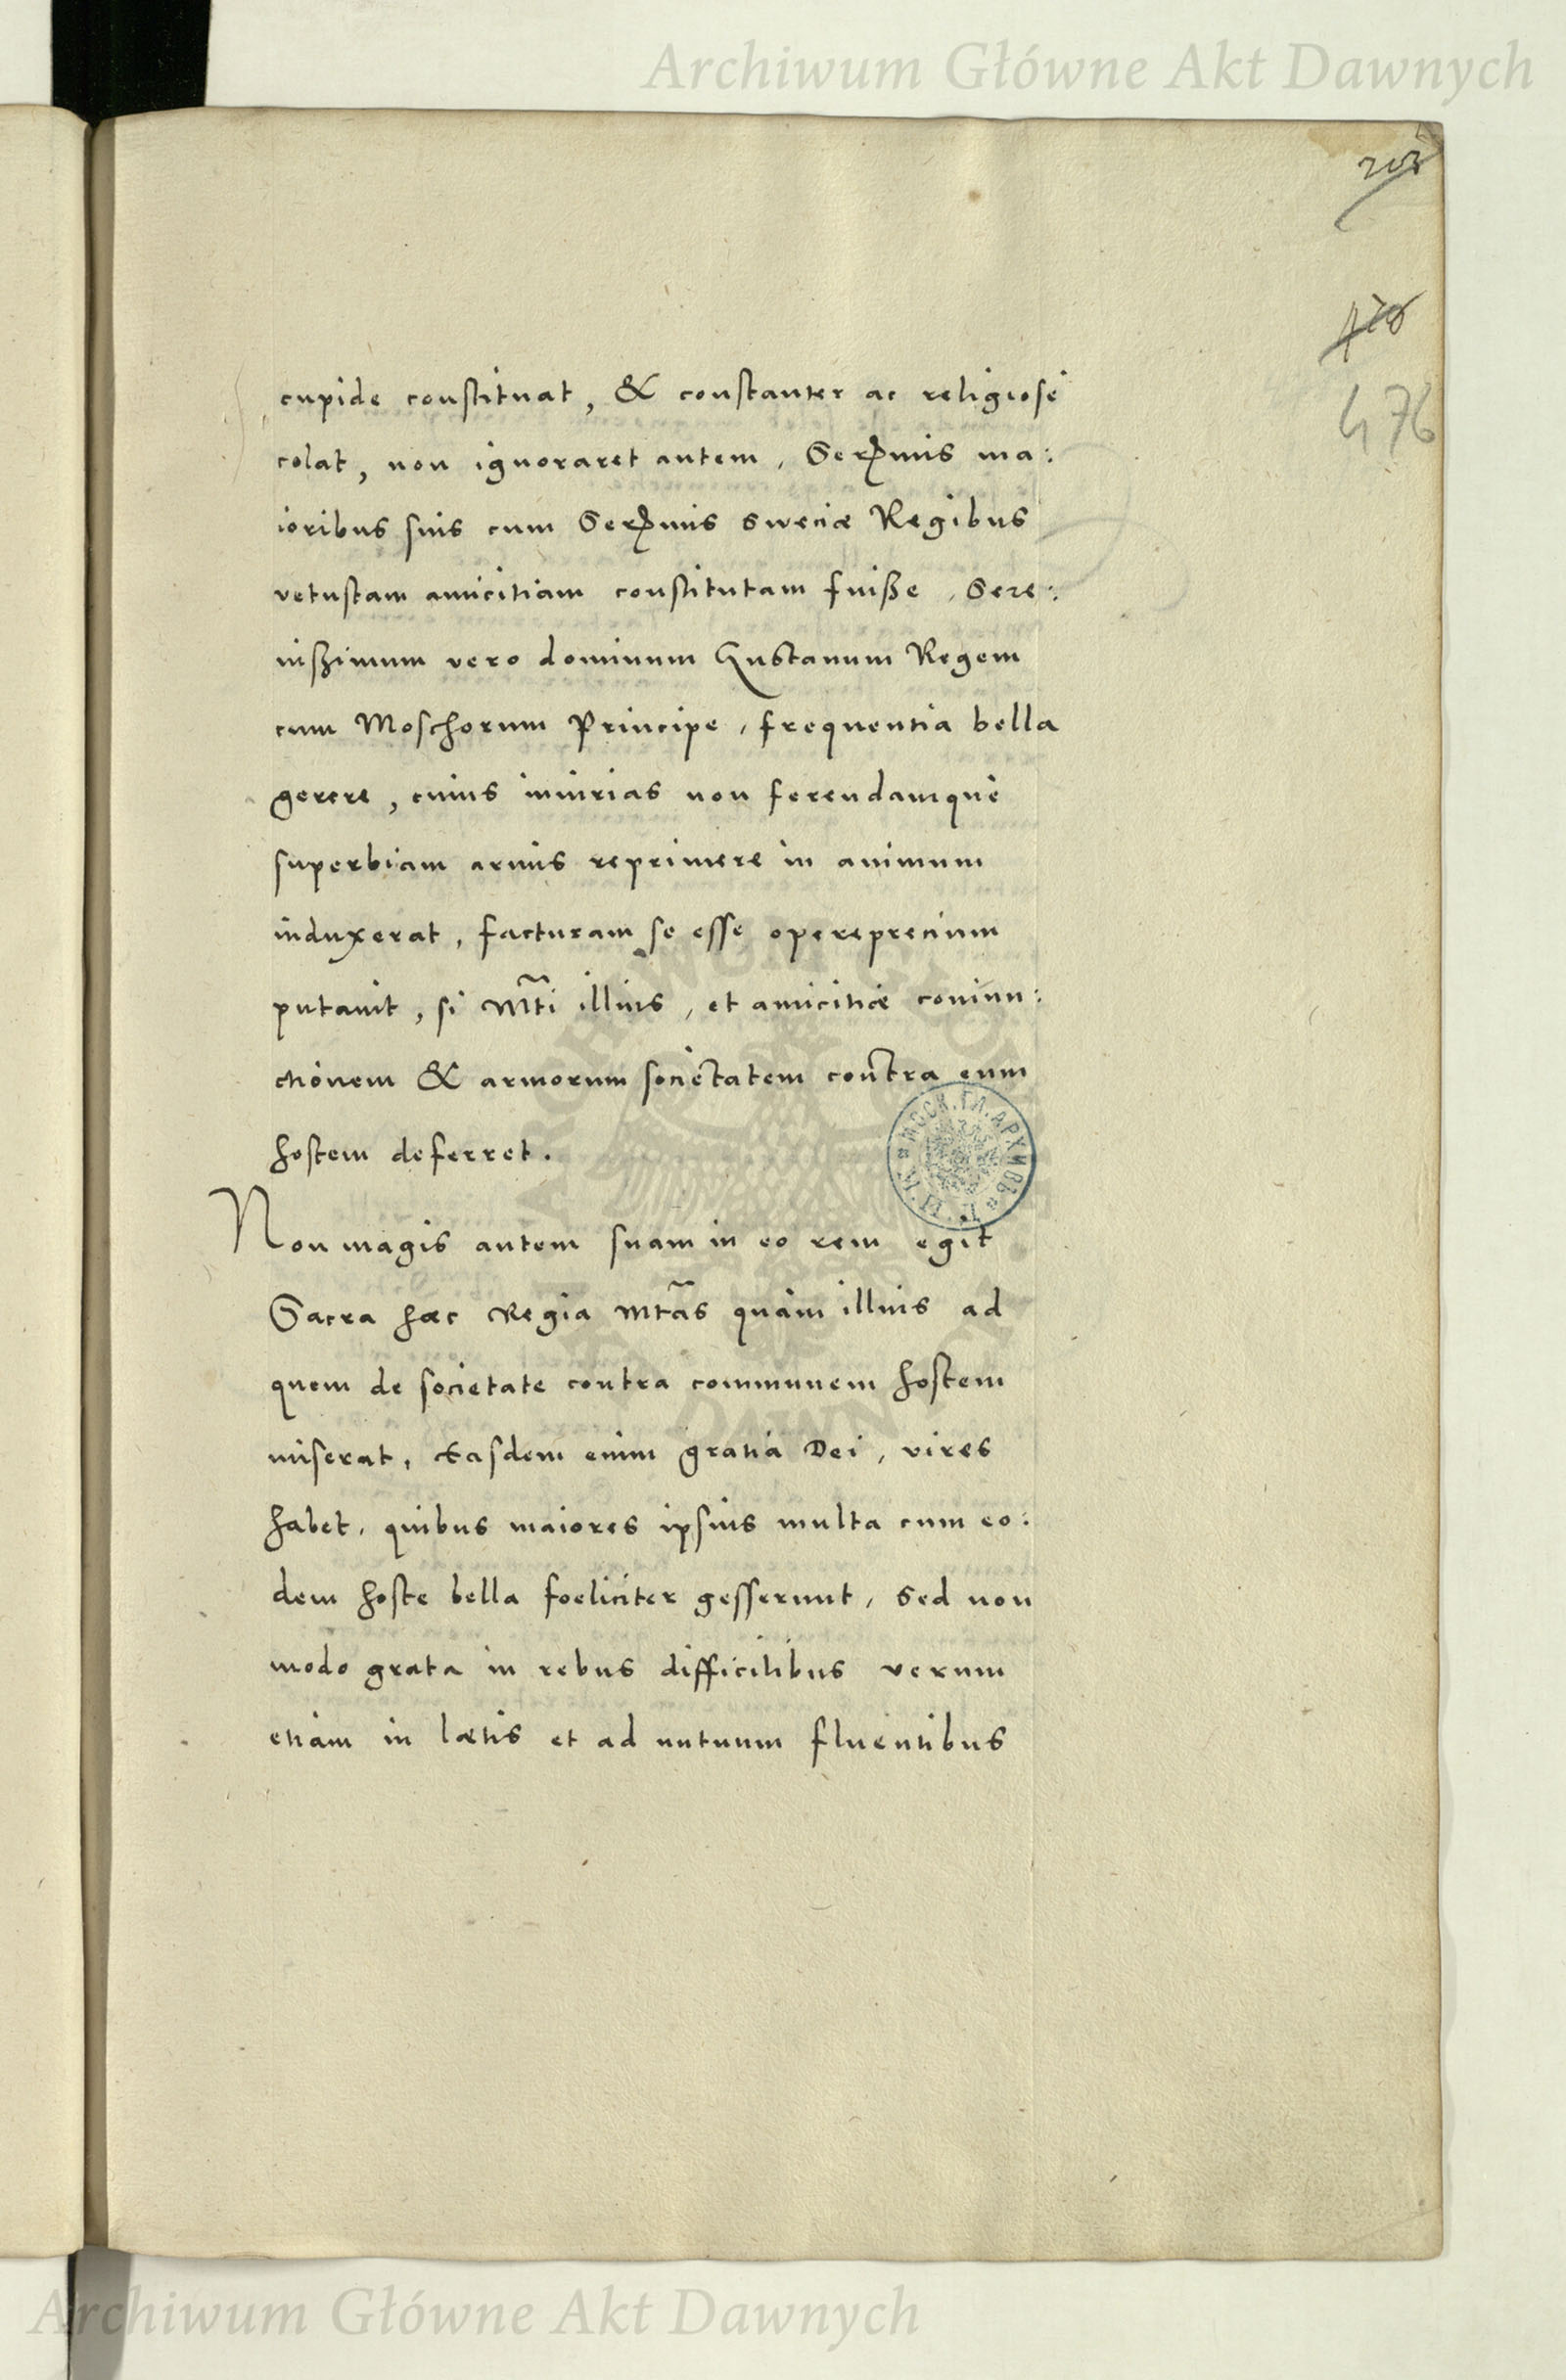 Archiwum Główne Akt Dawnych
203
476
cupide constituat, & constanter ac religiose
colat, non ignoraret autem, Serꝑmis ma:
ioribus suis cum Serꝑmis Sweciæ Regibus
vetustam amicitiam constitutam fuiße, Sere:
nißimum vero dominum Gustauum Regem
cum Moschorum Principe, frequentia bella
gerere, cuius iniurias non ferendamque
superbiam armis reprimere in animum
induxerat, facturam se esse opereprecium
putauit, si Mti illius, et amicitiæ coniun:
ctionem & armorum societatem contra eum
hostem deferret.
Non magis autem suam in eo rem egit
Sacra hæc Regia Mtas quam illius ad
quem de societate contra communem hostem
miserat, Easdem enim gratia Dei, vires
habet, quibus maiores ipsius multa cum eo:
dem hoste bella foeliciter gesserunt, Sed non
modo grata in rebus difficilibus verum
etiam in lætis et ad nutuum fluentibus
Archiwum Główne Akt Dawnych